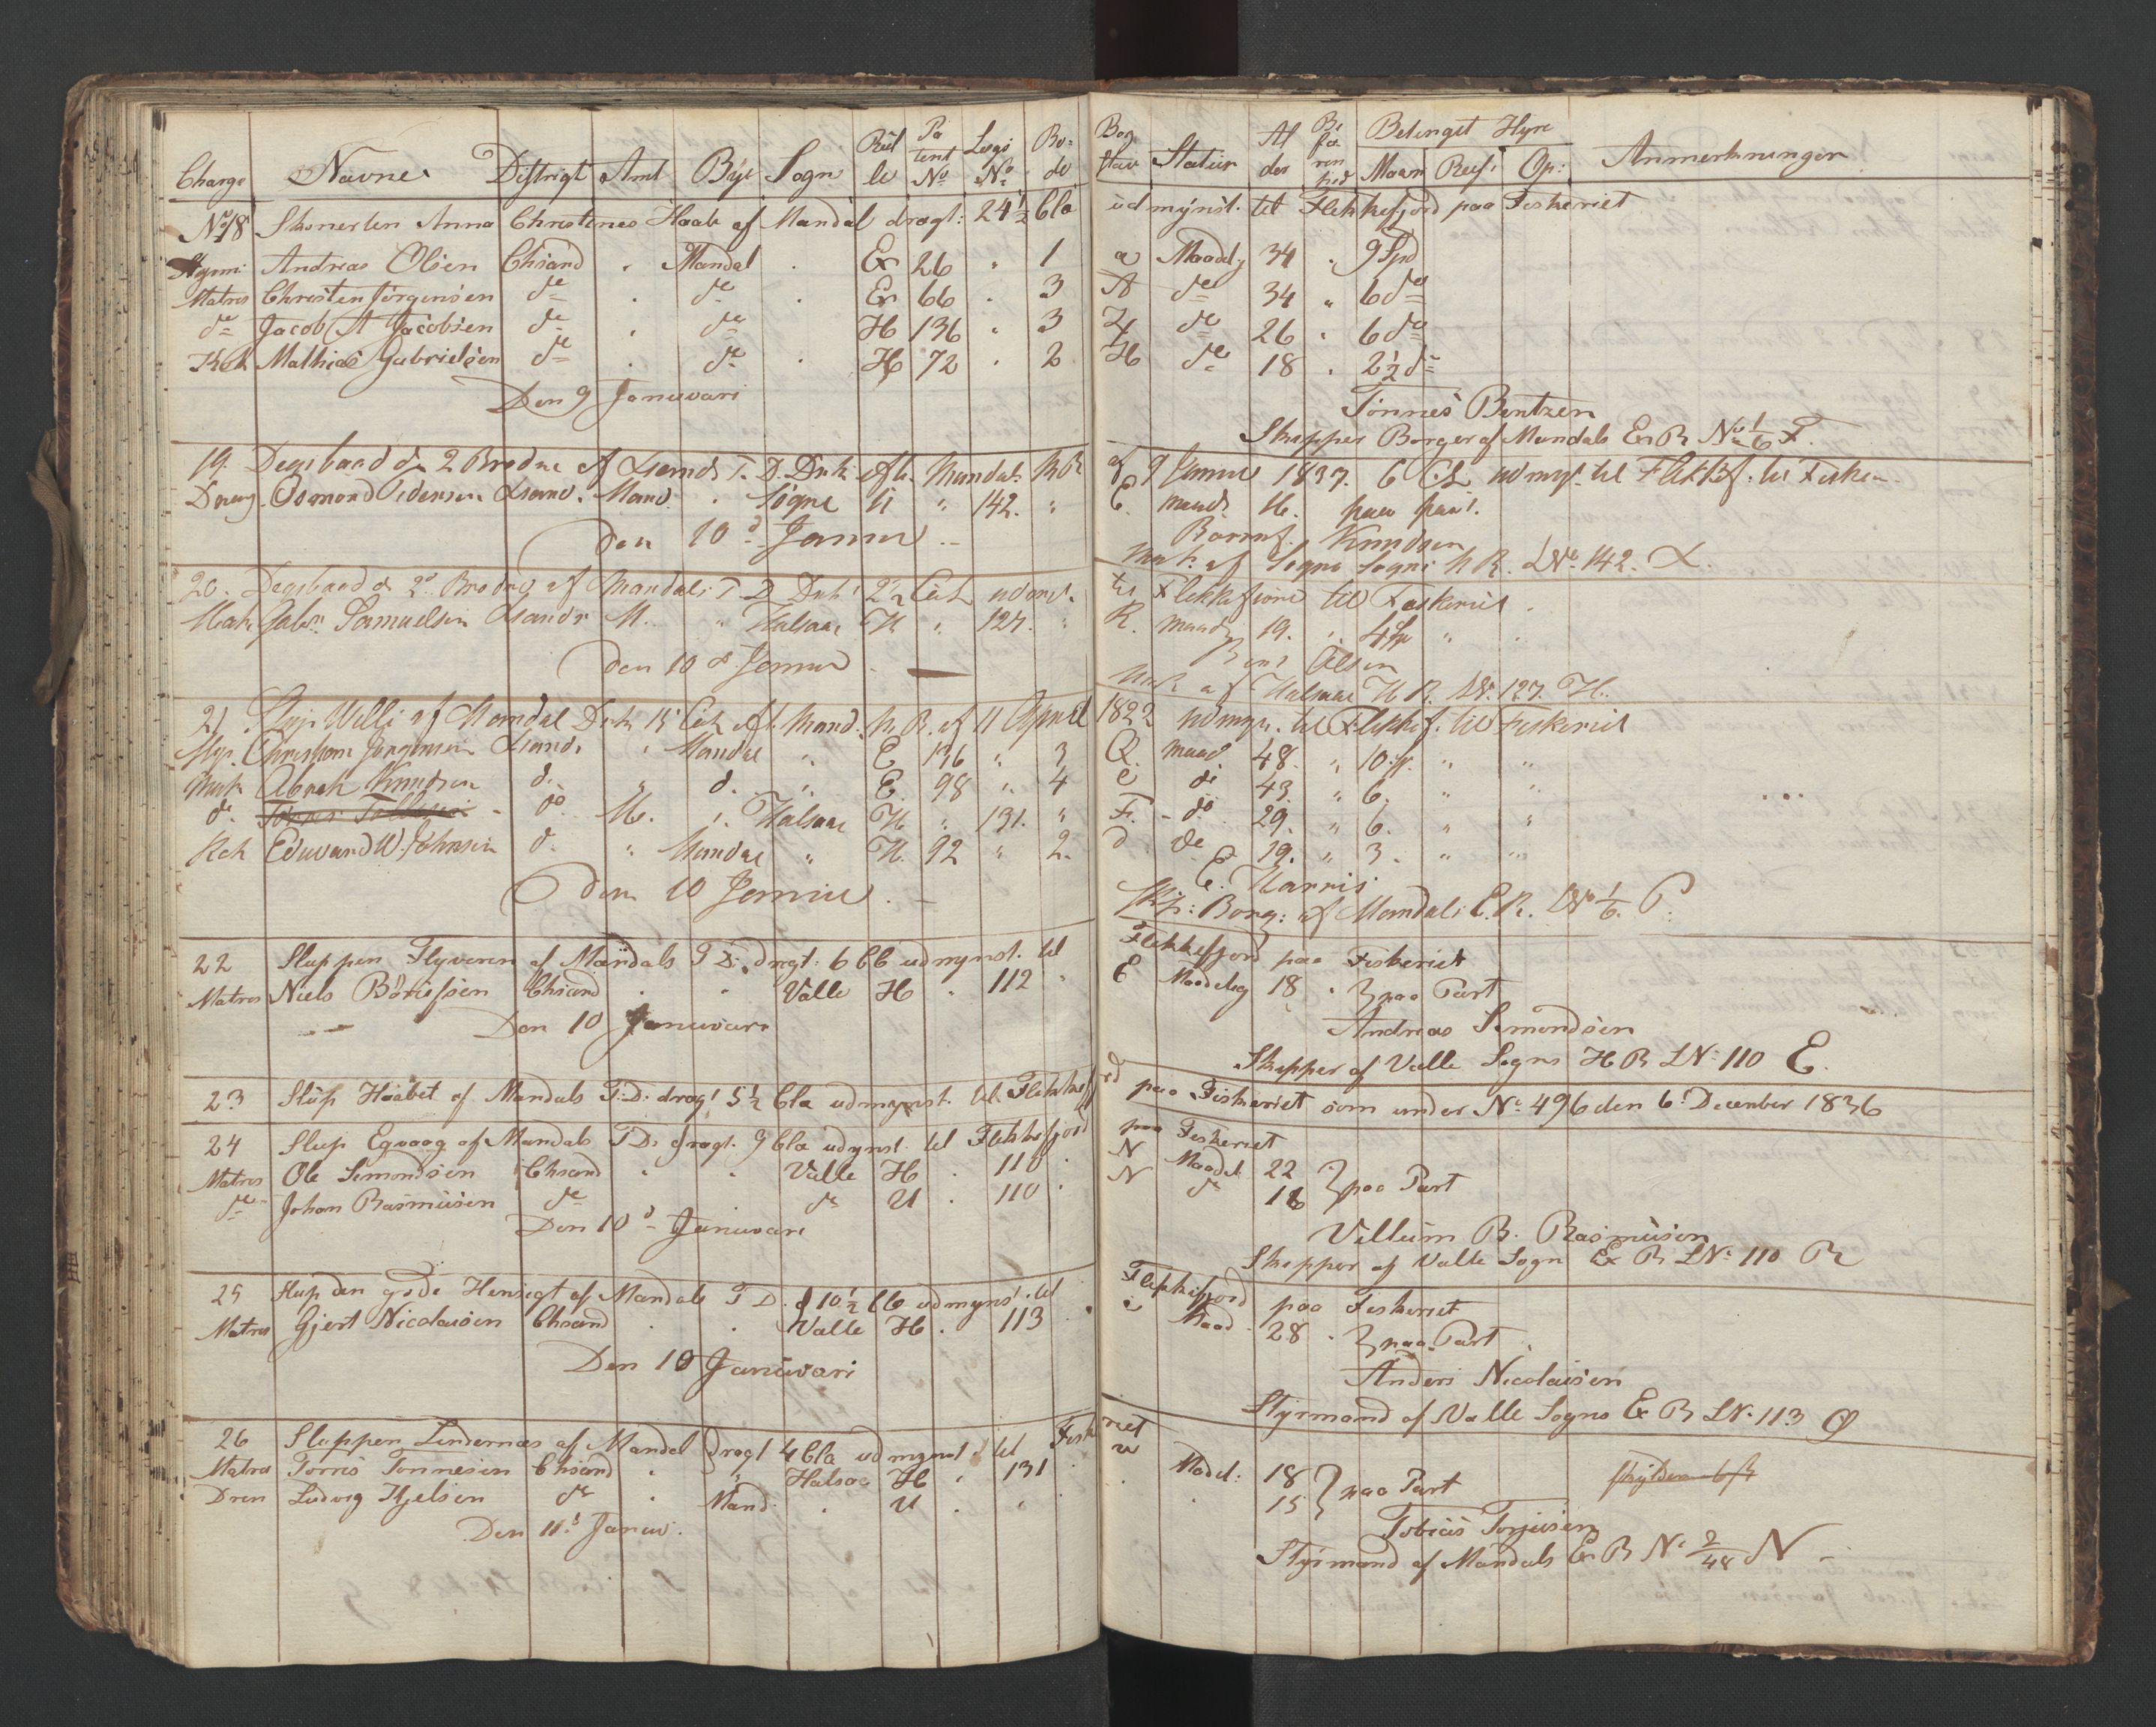 Charge Navne Distrigt Amt Bÿe Sogn Rul le Pa tent No Lægs No Ro- de Bog stav Statur Al der Be fa ren hed Betinget Hyre Maan Reis: Op: Anmerkninger
No 18 Skonerten Anna Christines Haab af Mandal drægt: 24 1/2 Cla udmÿnst. til Flekkefjord paa Fiskeriet
Styrm: Andreas Olsen Chsand " Mandal " Ex 26 " 1 a Maadel: 34 " 9 Spd
Matros Christen Jörgensen do " do " Ex 66 " 3 A do 34 " 6 do
do Jacob A Jacobsen do " do H 136 " 3 Z do 26 " 6 do
Kok Mathias Gabrielsen do " do " H 72 " 2 H do 18 " 2 1/2 do
Den 9 Januari
Tönnes Bentzen
Skipper Borger af Mandals Ex R No 1/6 F.
19. Degsbaad de 2 Brødre af T. D. Drk. Mandals af 9 Janur 1837. 6 CL udmys. til Flekkef. til Fisker.
Dreng. Osmond Pedersen Mand. " Søgne U " 142. " E. maad. 16. paa part.
den 10d Janur
Knudsen
Mat. af Søgne Sogn: H R. LNo 142. L.
20. Degsbaad de 2de Brødre af Mandals T. D. Drk: 2 1/2 Cl. udmst. til Flekkefiord til Fiskeriet.
Mat. Gabr. Samuelsen M. " Halsaae H. " 127. " R. maad. 19. " 4 Sp " "
den 10 d. Janur
Bent Olsen
Mat. af Halsaae H R. LNo. 127. H.
21. Slup. Willi af Mandal Drk. 15 Cl. Mand. R. af 11 April 1822 udmyn. til Flekkef. til Fiskeriet
Styr. Christian Jørgensen " Mandal " E 136 " 3 Q. maad 48. " 10. " "
Mat. Abrah Knudsen d. " d. " E. 98 " 4 e do 43. " 6. " "
do. Tørres Tellefsen do. M. " Halsaae H " 131. " F. do 29. " 6. " "
Kok Eduuard W. Johnsen d. " Mandal " H. 92 " 2. d de 19. " 3. " "
den 10 Janur.
E. Harris
Skip: Borg: af Mandals E.R. No 1/6. P.
22 Sluppen Flyveren af Mandals T D: drægt. 6 Cl udmynst. til Flekkefjord paa Fiskeriet
Matros Niels Börilsen Chsand " " Valle H " 112 " E Maadelig 18 " paa Part
Den 10 Januari
Andreas Simondsen
Skipper af Valle Sogns H R LNo 110 E.
23 Slup Haabet af Mandals T: D: drægt 5 1/2 Cla udmynst. til Flekkefjord paa Fiskeriet som under No 496 den 6 December 1836
24 Slup Egvaag af Mandals T D: drægt. 9 Cla udmynst til Flekkefjord paa Fiskeriet
Matros Ole Simondsen Chsand " " Valle H " 110 " N Maadel: 22 } paa Part
do Johan Rasmusen do do U " 110 " N do 16
Den 10d Januari
Villum B. Rasmusen
Skipper af Valle Sogn Ex R LNo 110 R
25 Slup den gode Hensigt af Mandals T D. d 10 1/2 Cl udmynst. til Flekkefjord paa Fiskeriet
Matros Gjert Nicolaisen Chsand " " Valle H " 113 " i Maad. 28 " paa Part
Den 10 Januari
Anders Nicolaisen
Styrmand af Valle Sogns Ex R LNo. 113 Ø
26 Sluppen Lindernæs af Mandal Drægt 4 Cla udmynst til Fiskeriet
Matros Torris Tonnesen Chsand " " Halsaa H " 131 " u Madel: 18 } paa Part
Dren Ludvig Kjelsen do " Mand. " U " " " 15
Den 11d Janu.
Tobias Torjusen
Styrmand af Mandals Ex R No 2/48 N